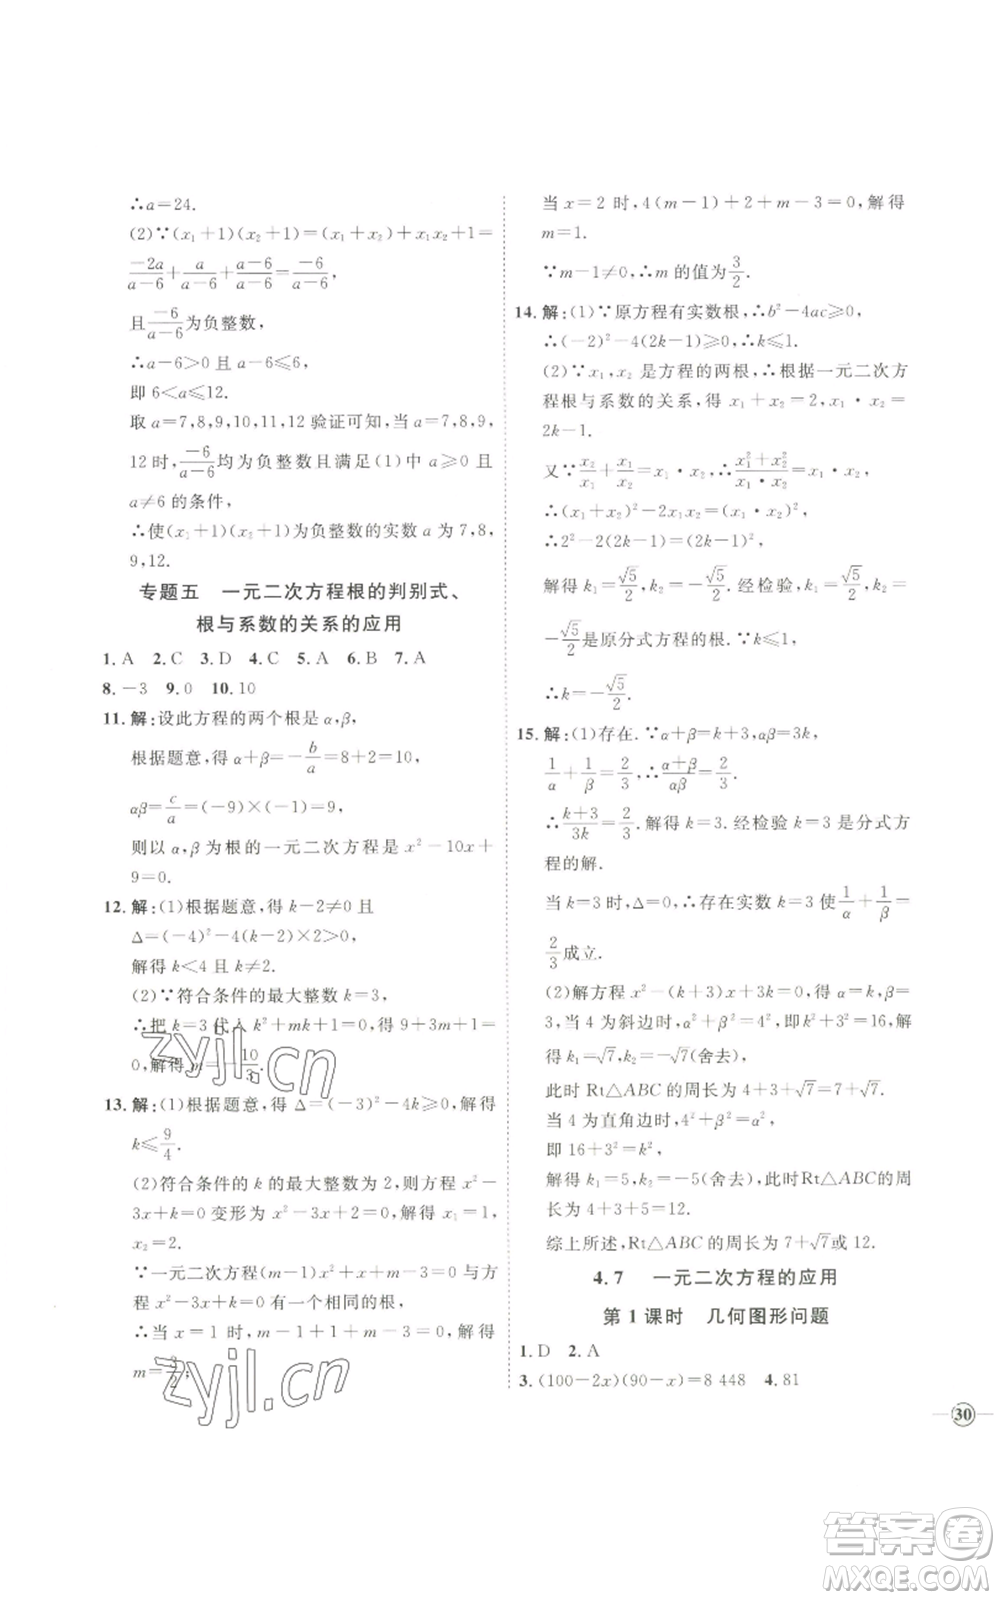 ∴a=24.
(2)∵(x₁+1)(x₂+1)=(x₁+x₂)+x₁x₂+1=
-2a/(a-6)+a/(a-6)+(a-6)/(a-6)=-6/(a-6),
且-6/(a-6)为负整数,
∴a-6>0 且 a-6≤6,
即 6<a≤12.
取 a=7,8,9,10,11,12 验证可知,当 a=7,8,9,
12时,-6/(a-6)均为负整数且满足(1)中 a≥0 且
a≠6 的条件,
∴使(x₁+1)(x₂+1)为负整数的实数 a 为 7,8,
9,12.
专题五 一元二次方程根的判别式、
根与系数的关系的应用
1. A 2. C 3. D 4. C 5. A 6. B 7. A
8. -3 9. 0 10. 10
11. 解:设此方程的两个根是 α,β,
根据题意,得 α+β=-b/a=8+2=10,
αβ=c/a=(-9)×(-1)=9,
则以 α,β 为根的一元二次方程是 x²-10x+
9=0.
12. 解:(1)根据题意,得 k-2≠0 且
Δ=(-4)²-4(k-2)×2>0,
解得 k<4 且 k≠2.
(2)∵符合条件的最大整数 k=3,
∴把 k=3 代入 k²+mk+1=0,得 9+3m+1=
0,解得 m=-10/3.
13. 解:(1)根据题意,得 Δ=(-3)²-4k≥0,解得
k≤9/4.
(2)符合条件的 k 的最大整数为 2,则方程 x²-
3x+k=0 变形为 x²-3x+2=0,解得 x₁=1,
x₂=2.
∵一元二次方程(m-1)x²+x+m-3=0 与
方程 x²-3x+k=0 有一个相同的根,
∴当 x=1 时,m-1+1+m-3=0,解得
m=3/2;
当 x=2 时,4(m-1)+2+m-3=0,解得
m=1.
∵m-1≠0,∴m 的值为3/2.
14. 解:(1)∵原方程有实数根,∴b²-4ac≥0,
∴(-2)²-4(2k-1)≥0,∴k≤1.
(2)∵x₁,x₂ 是方程的两根,∴根据一元二次方
程根与系数的关系,得 x₁+x₂=2,x₁·x₂=
2k-1.
又∵x₂/x₁+x₁/x₂=x₁·x₂,∴(x₁²+x₂²)/(x₁·x₂)=x₁·x₂,
∴(x₁+x₂)²-2x₁x₂=(x₁·x₂)²,
∴2²-2(2k-1)=(2k-1)².
解得 k₁=√5/2,k₂=-√5/2. 经检验,k₁=√5/2,k₂=
-√5/2是原分式方程的根.∵k≤1,
∴k=-√5/2.
15. 解:(1)存在.∵α+β=k+3,αβ=3k,
1/α+1/β=2/3,∴(α+β)/αβ=2/3.
∴(k+3)/3k=2/3. 解得 k=3. 经检验 k=3 是分式方
程的解.
当 k=3 时,Δ=0,∴存在实数 k=3 使1/α+1/β=
2/3成立.
(2)解方程 x²-(k+3)x+3k=0,得 α=k,β=
3,当 4 为斜边时,α²+β²=4²,即k²+3²=16,解
得 k₁=√7,k₂=-√7(舍去),
此时 Rt△ABC 的周长为 4+3+√7=7+√7;
当 4 为直角边时,4²+β²=α²,
即 16+3²=k²,
解得 k₁=5,k₂=-5(舍去),此时Rt△ABC 的周
长为 4+3+5=12.
综上所述,Rt△ABC的周长为 7+√7或 12.
4.7 一元二次方程的应用
第 1 课时 几何图形问题
1. D 2. A
3. (100-2x)(90-x)=8 448 4. 81
30
zyjl.cn
zyjl.cn
答案卷
MXQE.COM